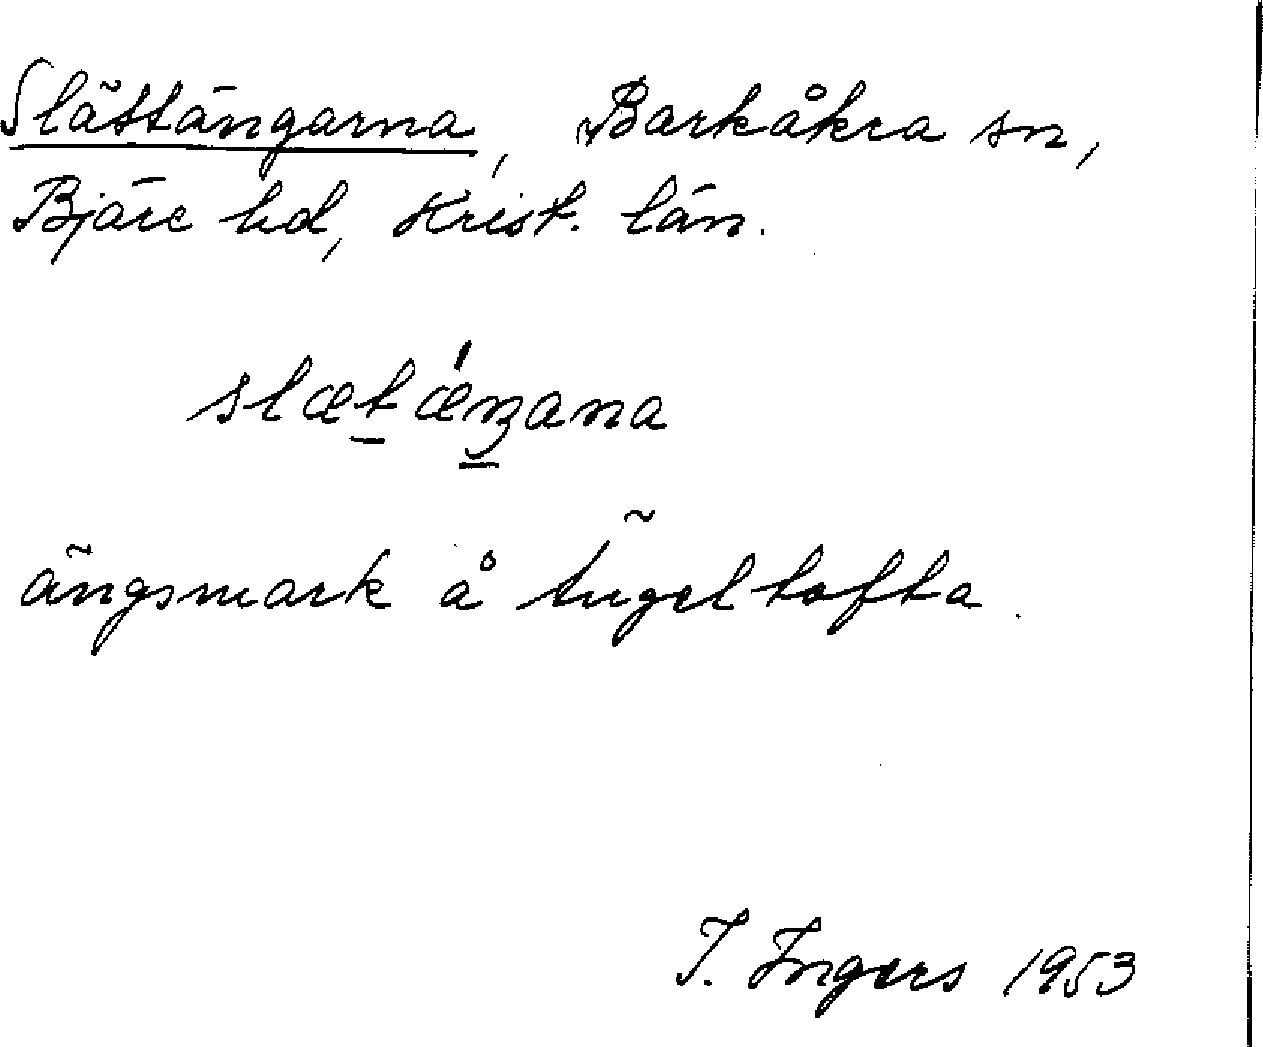 Slättängarna, Barkåkra sn,
Bjäre hd, Krist. län.
slætǽŋana
ängsmark å Ängeltofta.
I. Ingers 1953